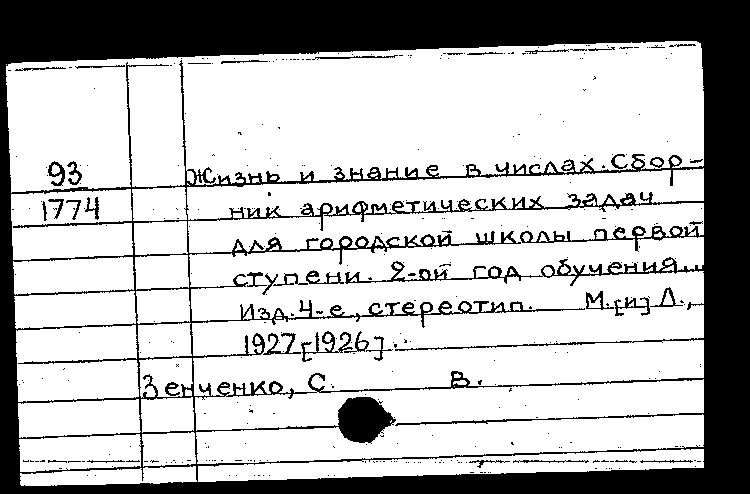 93 Жизнь и знание в числах. Сбор-
1774 ник арифметических задач
для городской школы первой
ступени. 2-ой год обучения...
Изд. 4-е, стереотип. М. [и] Л.,
1927 [1926].
Зенченко, С. В.